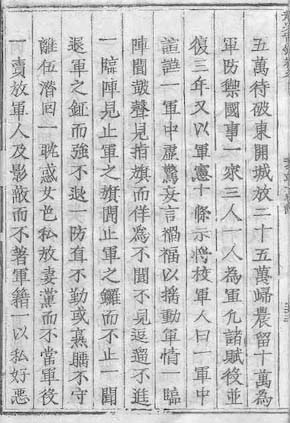 五萬待破東開城放二十五萬歸農留十萬為
軍防禦國事一家三人一人為軍凡諸賦役並
復三年又以軍憲十條示將校軍人曰一軍中
諠譁一軍中虛驚妄言禍福以搖動軍情一臨
陣聞皷聲見指旗而佯為不聞不見逗遛不進
一臨陣見止軍之旗聞止軍之鑼而不止一聞
退軍之鉦而強不退一防直不勤或熹睡不守
離伍潛回一耽惑女色私放妻黨而不當軍役
一賣放軍人及影敵而不著軍籍一以私好惡